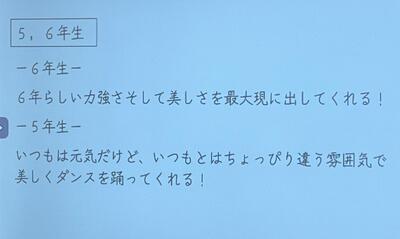 5,6年生
-6年生-
6年らしい力強さそして美しさを最大現に出してくれる!
-5年生-
いつもは元気だけど、いつもとはちょっぴり違う雰囲気で
美しくダンスを踊ってくれる!